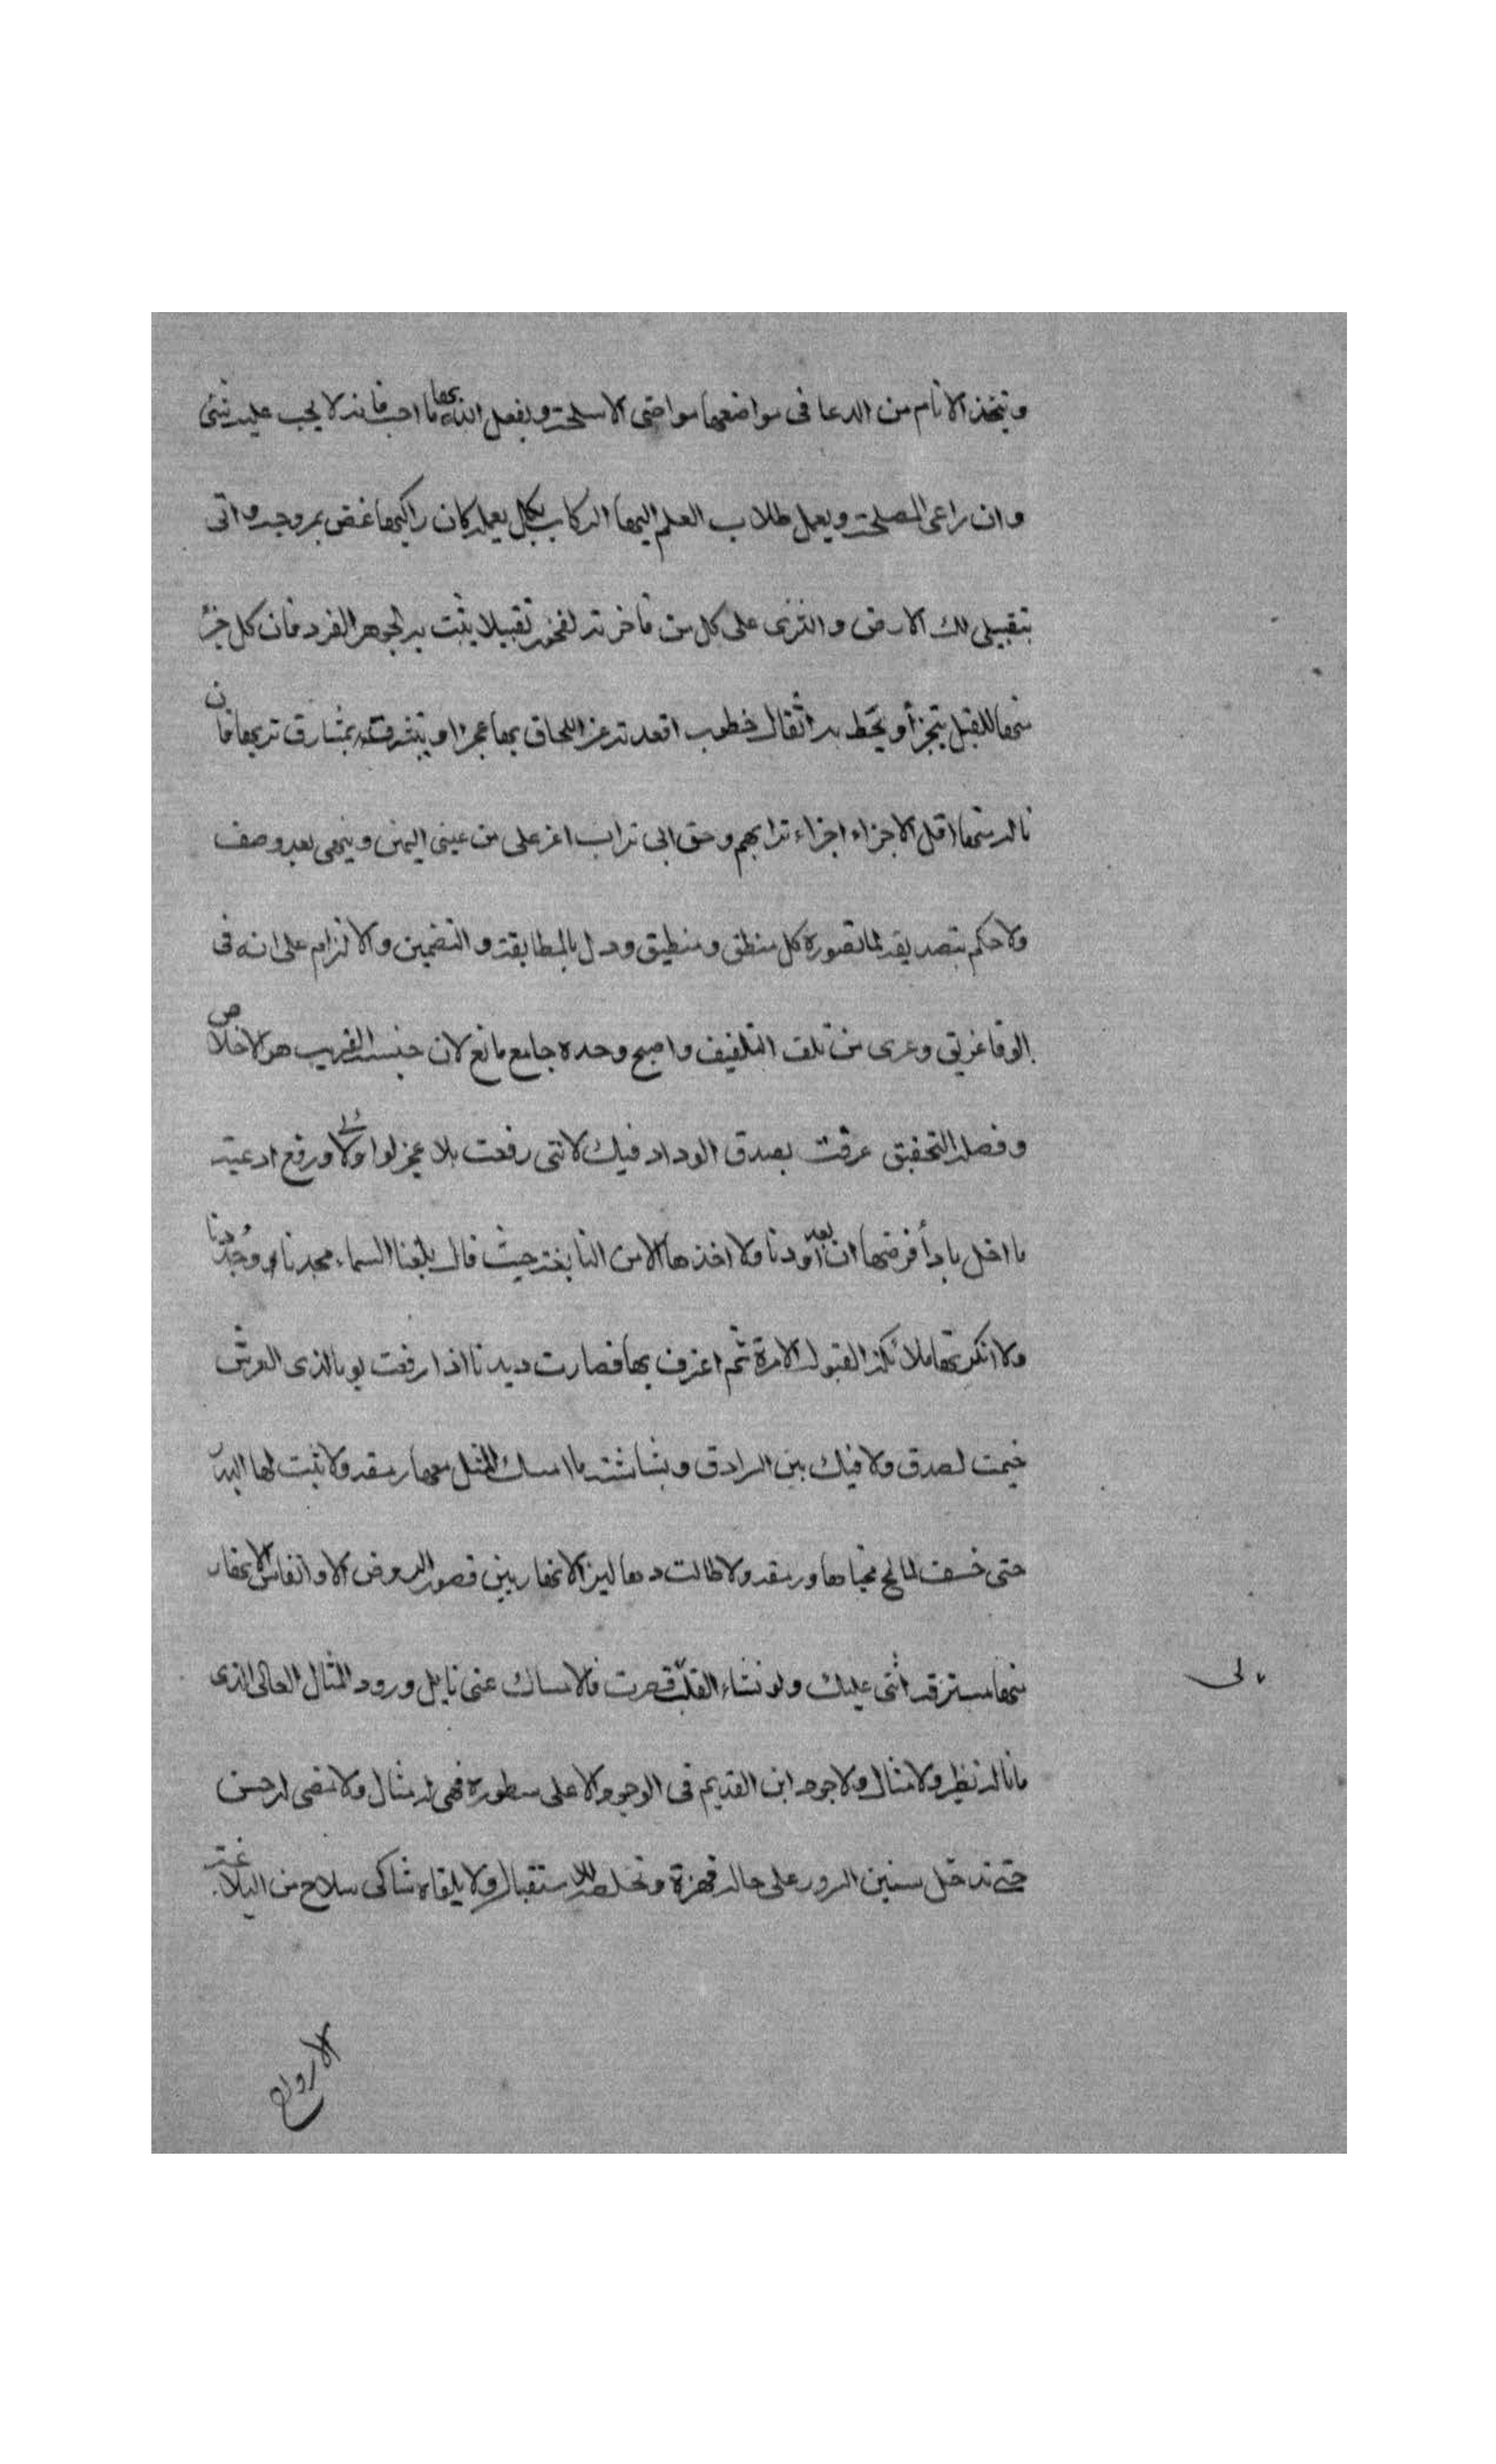 ويتخذ الانام من الدعا في مواضعها مواضي الاسلحة ويفعل الله بها ما احب فانه لا يجب عليه شئ
وان راعى المصلحة ويعمل طلاب العلم اليها الركاب بكل يعمله كان راكبها غض بمروحة واتى
بتقبيلي لك الارض والثرى على كل من فاخرته لفخور تقبيلا يثبت به الجوهر الفرد فان كل جزء
منها للقبل يتجزأ ويحط به اثقال خطوب اقعدته عن اللحاق بها عجزا ويتشرف بمشارق تربها فان
نال منها اقل الاجزاء اجزاء ترابهم وحق ابي تراب اعز على من عيني اليمنى وينهى بعد وصف
ولا حكم بتصديقه لما تصوره كل منطق ومنطيق ودل بالمطابقة والتضمين والالتزام على انه في
الوفا عريق وعرى من تلف التلفيف واصبح وحده جامع مانع لان جنسه القريب هو الاخلاص
وفصله التحقيق عرفت بصدق الوداد فيك لانني رفعت بلا عجز لواء ولائي ورفع ادعية
ما اخل بادأ فرضها ان بعد او دنا ولا اخذها الا من النابغة حيث قال بلغنا السماء مجدنا وجدنا
ولا انكرتها ملائكة القبول الا مرة ثم اعترف بها فصارت ديدنا اذا رفعت يوما لذي العرش
خيمت لصدق ولا فيك بين السرادق وبشاشته ما امسك المثل معها رمقه ولا تثبت لها اليد
حتى خسف لمالح محياها ورمقه ولا طالت دهاليز الانهار بين قصور الروض الا وانفاس الازهار
منها مسترقة اثنى عليك ولو تشاء لقلت قصرت فالامساك عنى نايل وورود المثال العالى الذى
ماناله نظير ولا مثال ولا جود ابن القديم في الوجود الا على سطوره فهى له مثال ولا مضى له حسن
حتى تدخل سنين السرور على حاله همزة وتخلصه للاستقبال ولا يلقاه شاكي سلاح من البلاغة
بالى
الاروح